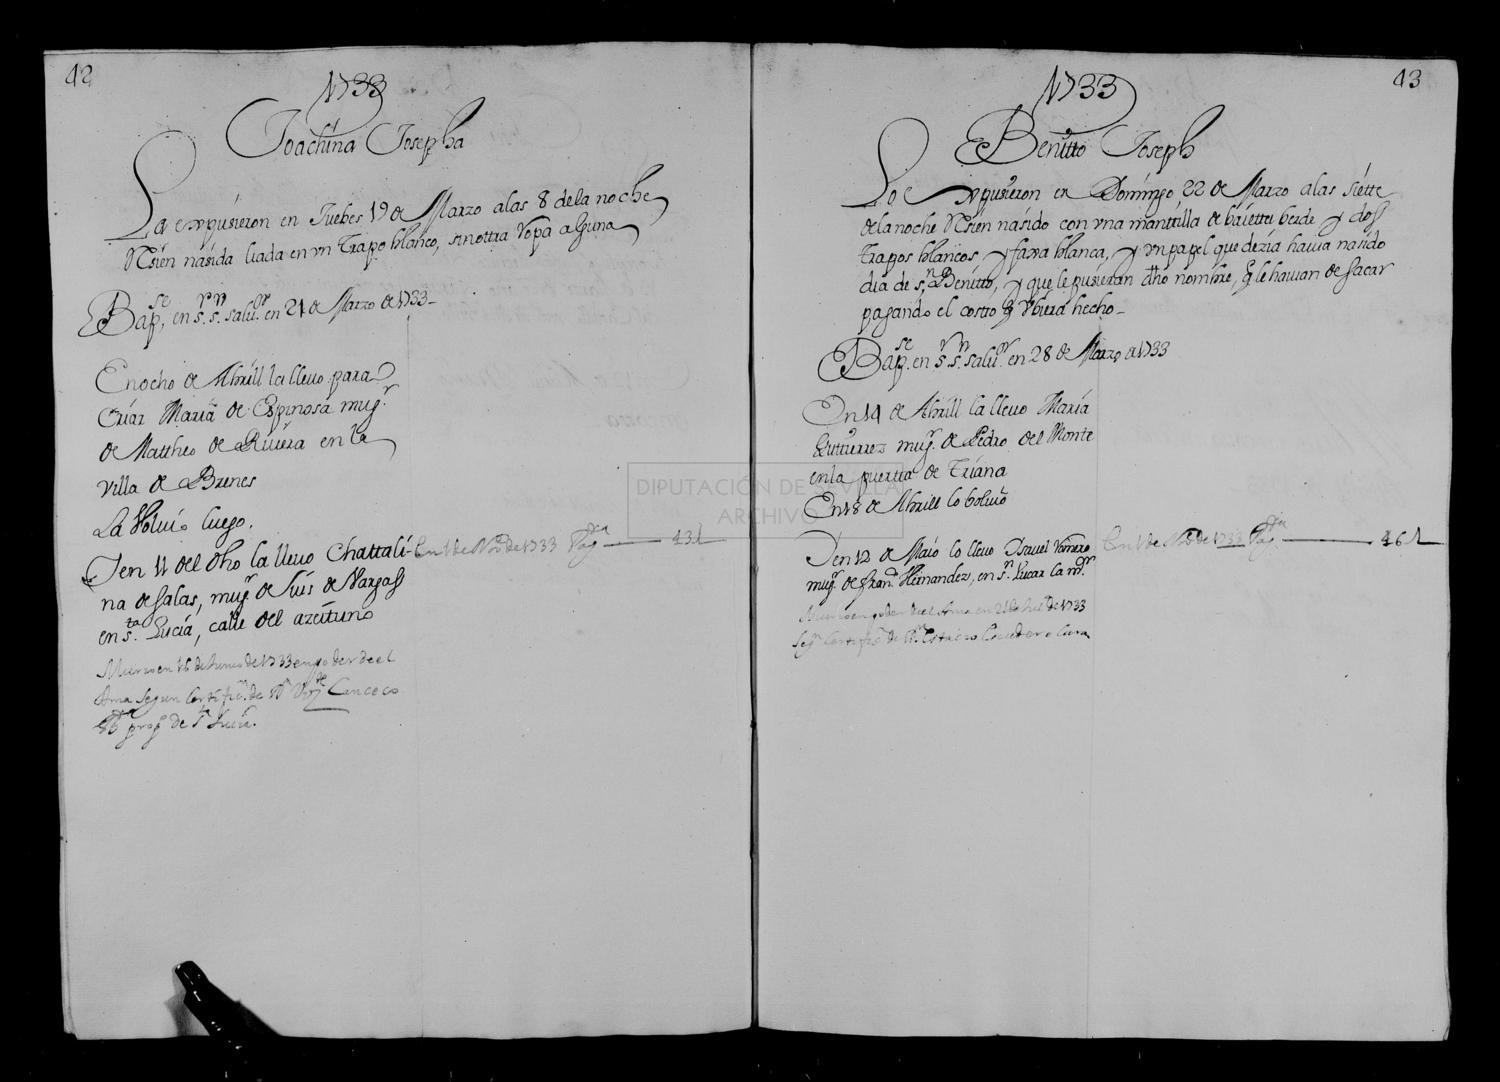 42
1733
Joachina Josepha
La expusieron en Juebes 19 de Marzo a las 8 de la noche
Rsien nasida liada en vn Trapo blanco, sin ottra ropa alguna
Bapse, en Sr. Sn. Salur. en 21 de Marzo de 1733-
En ocho de Abrill la lleuo para
Criar Maria de Espinosa mugr.
de Mattheo de Riuera en la
Villa de Brenes
La Voluio luego.
Y en 11 del dho la lleuo Chattali-
na de Salas, mugr. de Luis de Vargas
en Sta. Lucia, calle del azeituno
En 1 de Nov. de 1733 Pagda 431
Murio en 16 de Junio de 1733 en poder de el
Ama segun certificn. de
de Sta. Lucia.
43
1733
Benitto Joseph
Lo expusieron en Domingo 22 de Marzo a las siette
de la noche Rsien nasido con vna mantilla de baietta berde y dos
trapos blancos y faxa blanca, y vn papel que dezia hauia nasido
dia de Sn. Benitto, y que le pusieran dho nombre, q le hauian de sacar
pagando el costto q Vbiera hecho-
Bapse. en Sr. Sn. Salur. en 28 de Marzo de 1733
En 14 de Abrill la lleuo Maria
Gutierrez mugr. de Pedro del Monte
en la puertta de Triana
En 18 de Abrill lo boluio
Y en 12 de Maio lo lleuo Isauel Romero
mugr. de Franco. Hernandez, en Sn. Lucar la mor.
En 1 de Nov. de 1733 Pagda 461
Murio en poder de el Ama en 21 de Jul. de 1733
Segn. Certifn. de Dn. Corredor Cura
DIPUTACIÓN DE SEVILLA
ARCHIVO